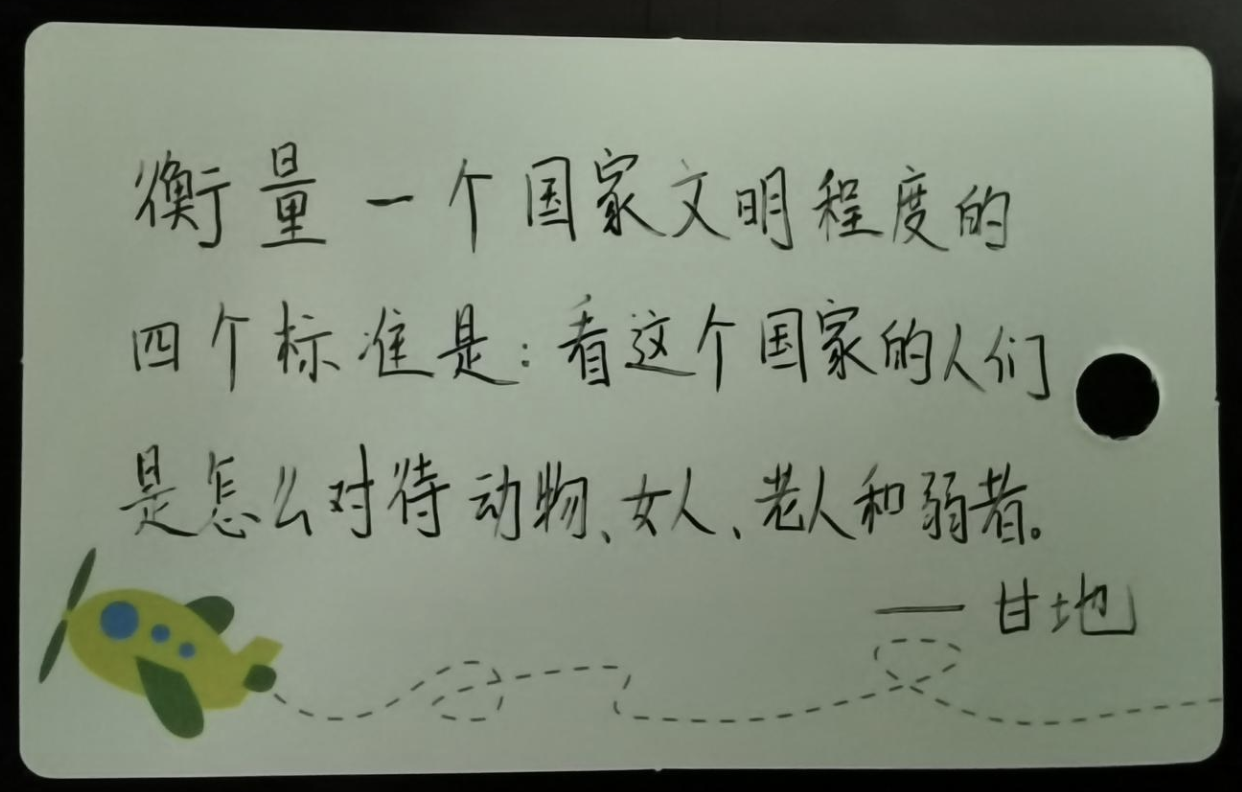 衡量一个国家文明程度的
四个标准是:看这个国家的人们
是怎么对待动物、女人、老人和弱者。
——甘地